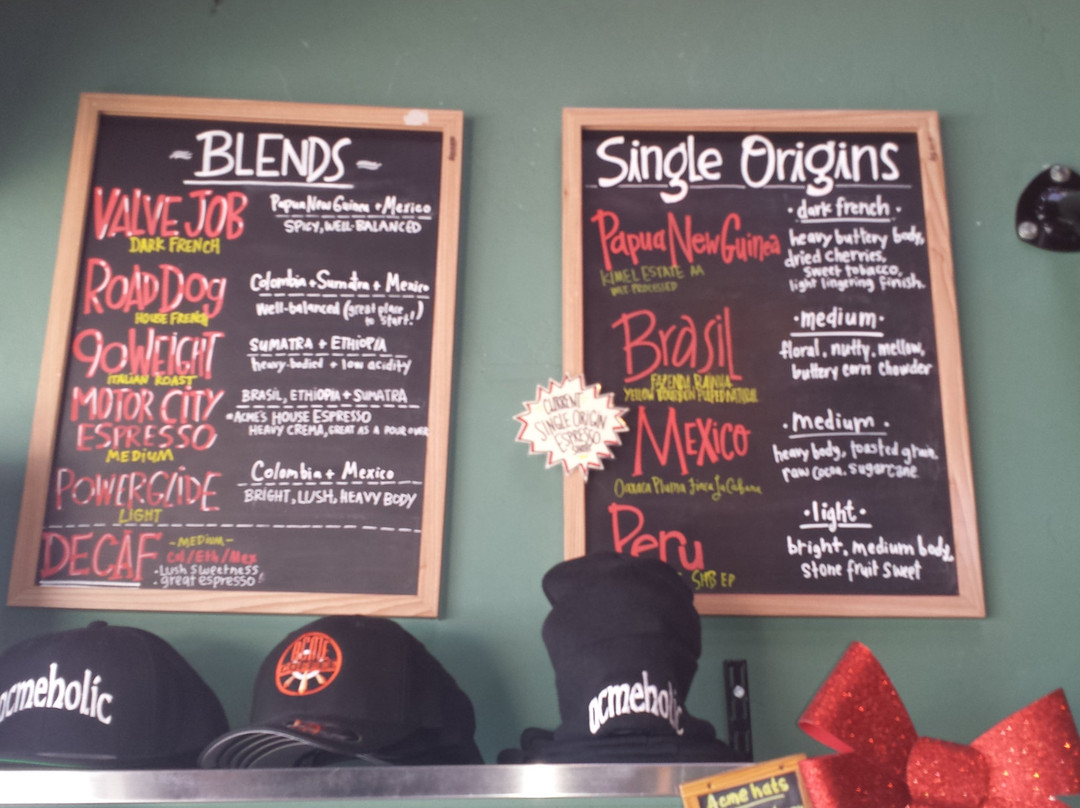 ~BLENDS~
VALVE JOB
DARK FRENCH
Papua New Guinea + Mexico
SPICY, WELL-BALANCED
ROAD DOG
HOUSE FRENCH
Colombia + Sumatra + Mexico
Well-balanced (great place to start!)
90 WEIGHT
ITALIAN ROAST
SUMATRA + ETHIOPIA
heavy-bodied + low acidity
MOTOR CITY
ESPRESSO
MEDIUM
BRASIL, ETHIOPIA + SUMATRA
•ACME'S HOUSE ESPRESSO
HEAVY CREMA, GREAT AS A POUR OVER
POWERGLIDE
LIGHT
Colombia + Mexico
BRIGHT, LUSH, HEAVY BODY
DECAF
-MEDIUM-
Col/Eth/Mex
•Lush Sweetness
•great espresso
Single Origins
Papua New Guinea
KIMEL ESTATE AA
WET PROCESSED
•dark french•
heavy buttery body,
dried cherries,
sweet tobacco,
light lingering finish.
Brasil
FAZENDA RAINHA
YELLOW BOURBON PULPED NATURAL
•medium•
floral, nutty, mellow,
buttery corn chowder
CURRENT
SINGLE ORIGIN
ESPRESSO
Mexico
Oaxaca Pluma Finca La Cabana
•medium•
heavy body, toasted grain,
raw cocoa, sugarcane
Peru
SHB EP
•light•
bright, medium body,
stone fruit sweet
acmeholic
ACME
acmeholic
Acme hats